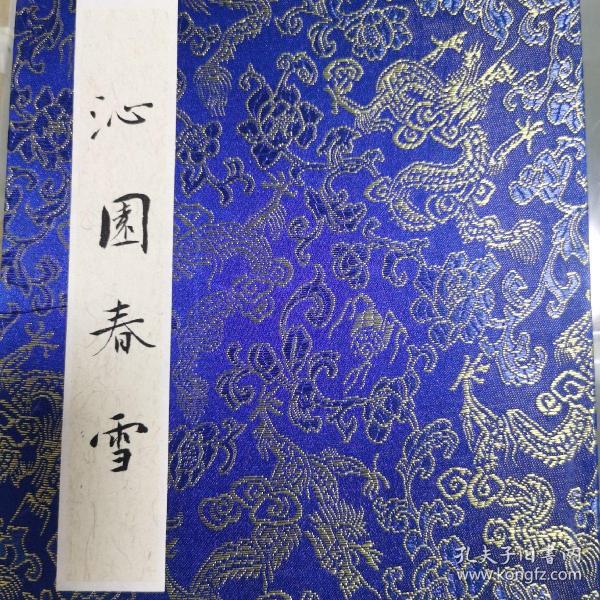 沁園春雪
孔夫子旧书网
www.kongfz.com